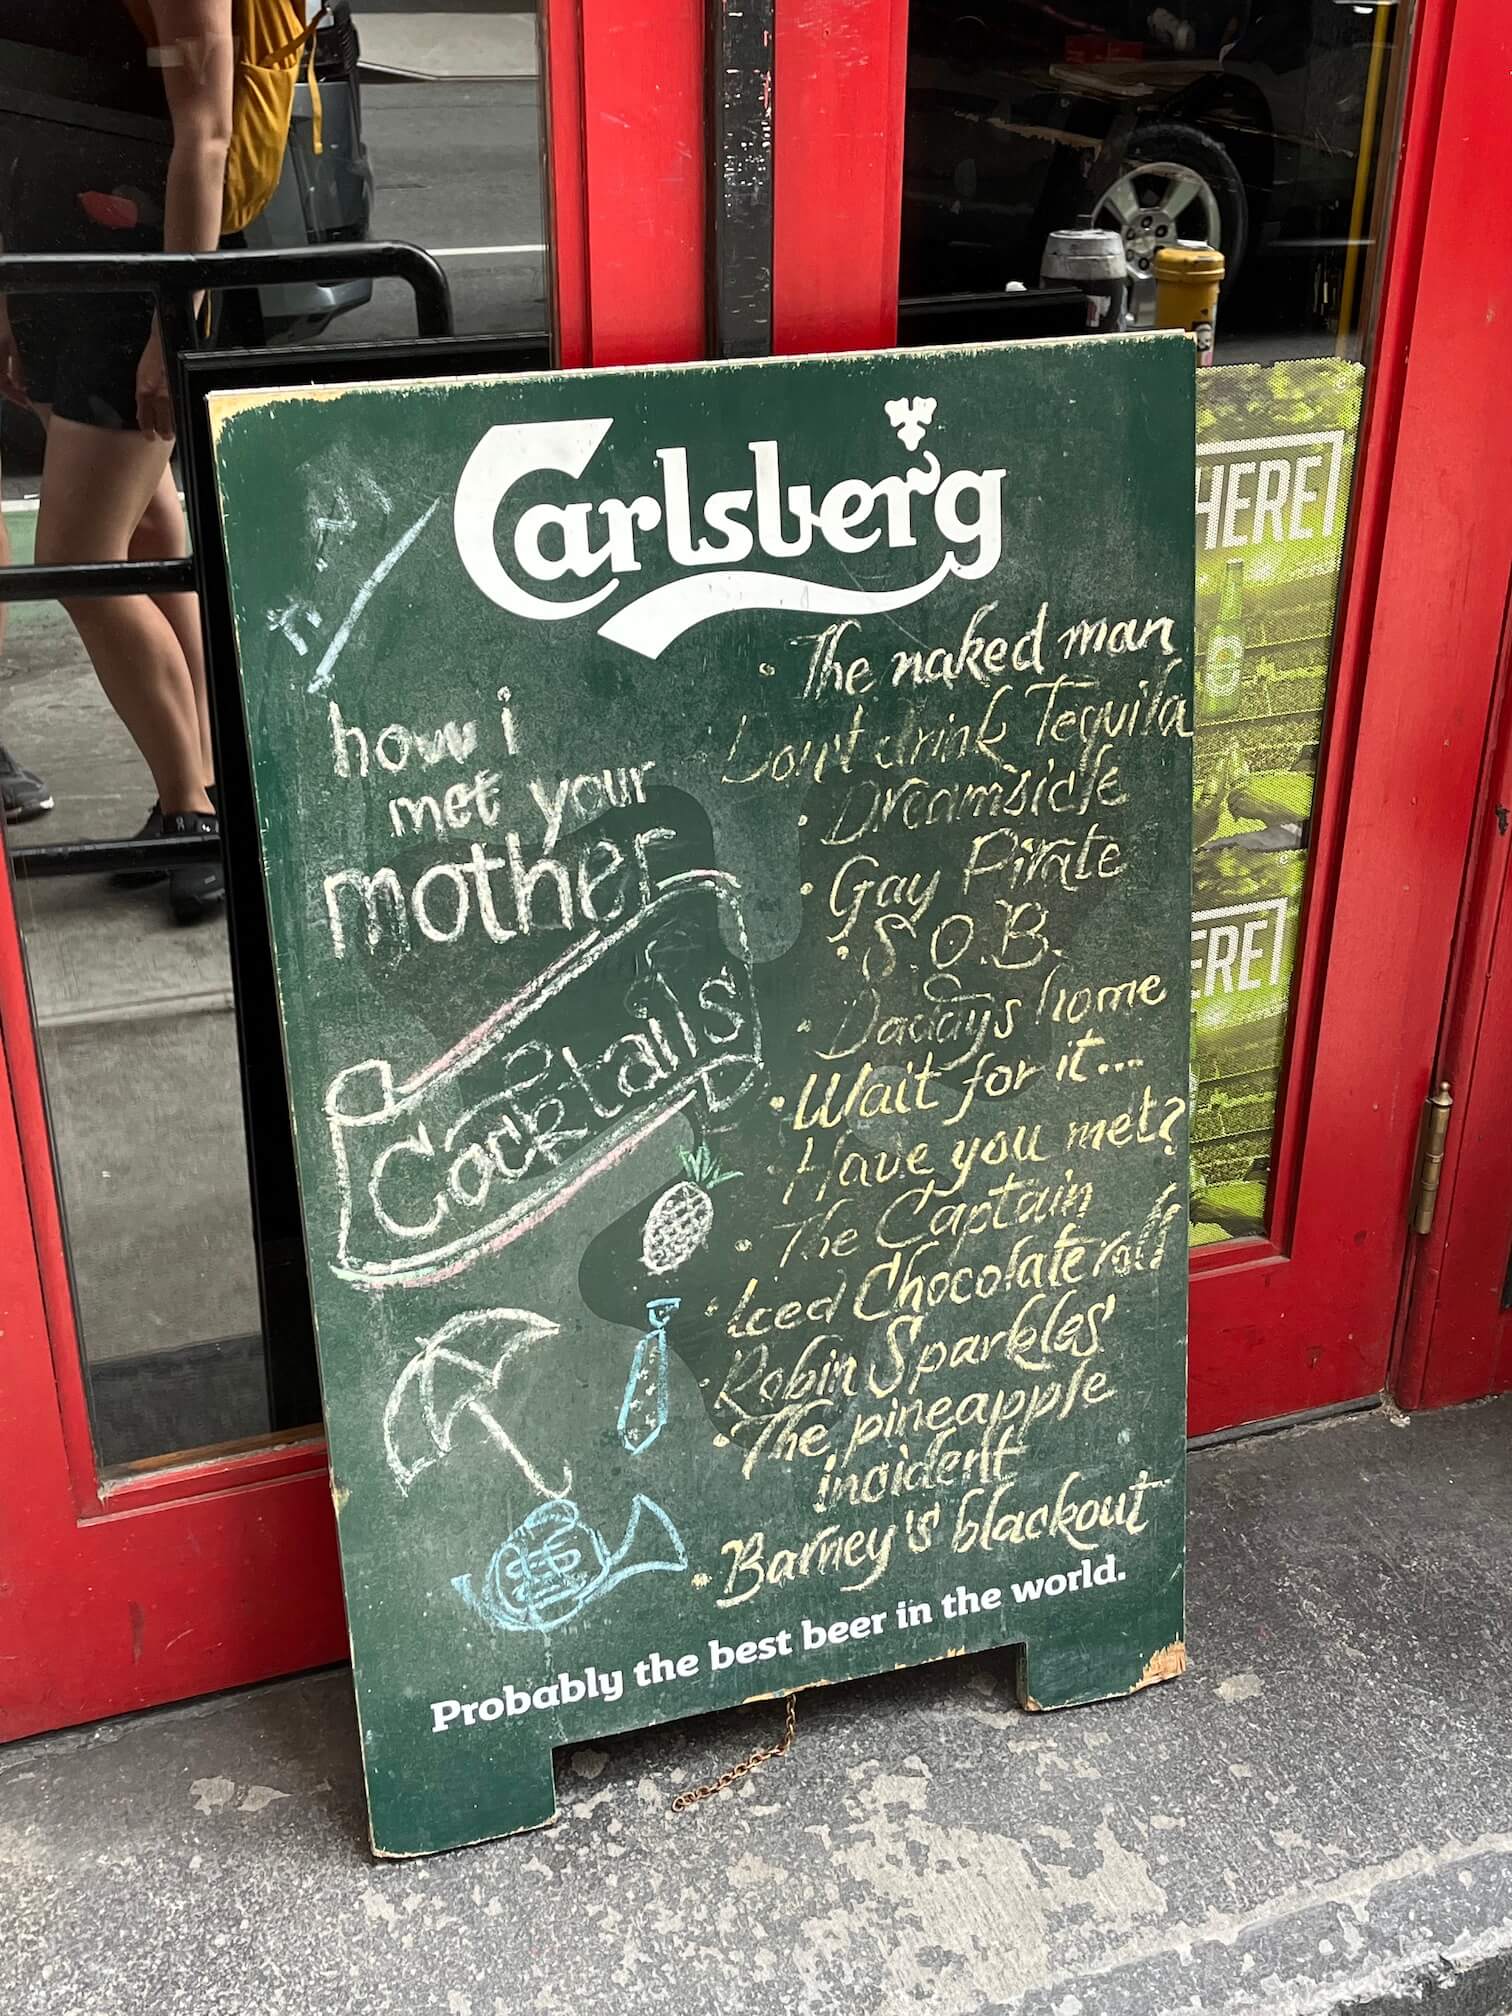 Carlsberg
how i
met your
mother
Cocktails
• The naked man
Don't drink Tequila
• Dreamsicle
• Gay Pirate
• S.O.B.
• Daddy's home
• Wait for it...
• Have you met?
• The Captain
• Iced Chocolate roll
• Robin Sparkles
• The pineapple
incident
• Barney's blackout
Probably the best beer in the world.
HERE!
ERE!